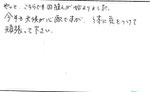 やっと、こちらでも田植えが始まりました。
今年も天候が心配ですが、体に気をつけて
頑張って下さい。